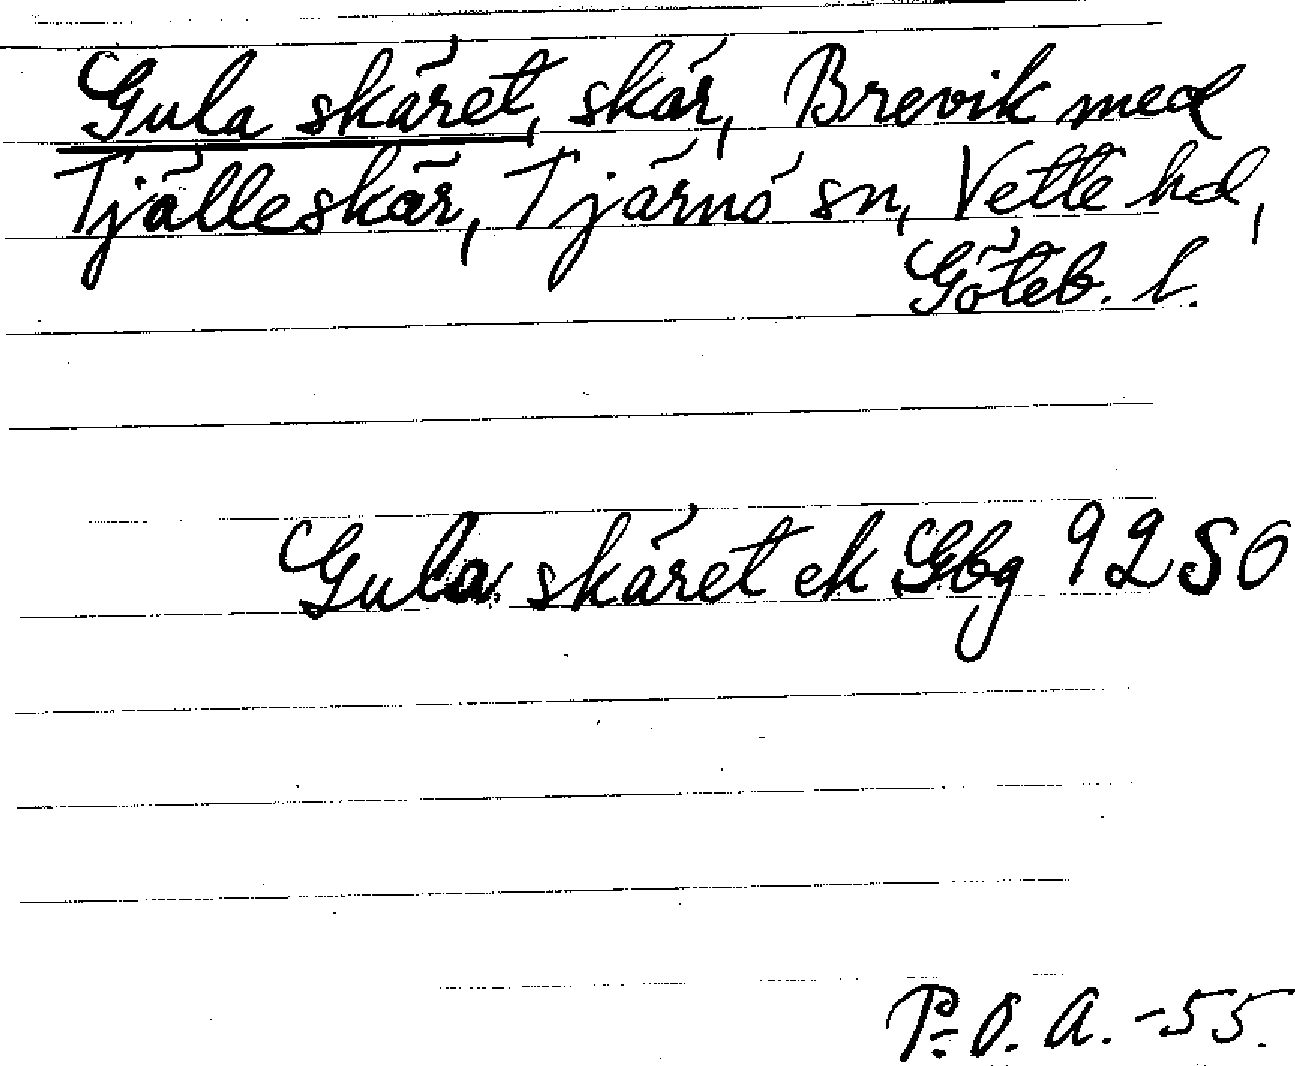 Gula skäret, skär, Brevik med
Tjälleskär, Tjärnö sn, Vette hd,
Göteb. l.
Gula skäret ek Gbg 9250
P. O. A. -55.